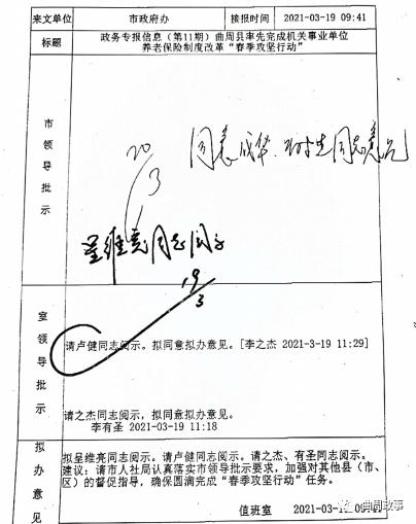 来文单位 市政府办 接报时间 2021-03-19 09:41
标题 政务专报信息（第11期）曲周县率先完成机关事业单位
养老保险制度改革“春季攻坚行动”
市领导批示
20/3
呈维亮同志阅示
19/3
室领导批示
请卢健同志阅示。拟同意拟办意见。[李之杰 2021-3-19 11:29]
请之杰同志阅示，拟同意拟办意见。
李有圣 2021-03-19 11:18
拟办意见
拟呈维亮同志阅示。请卢健同志阅示。请之杰、有圣同志阅示。
建议：请市人社局认真落实市领导批示要求，加强对其他县（市、
区）的督促指导，确保圆满完成“春季攻坚行动”任务。
值班室
曲周政事